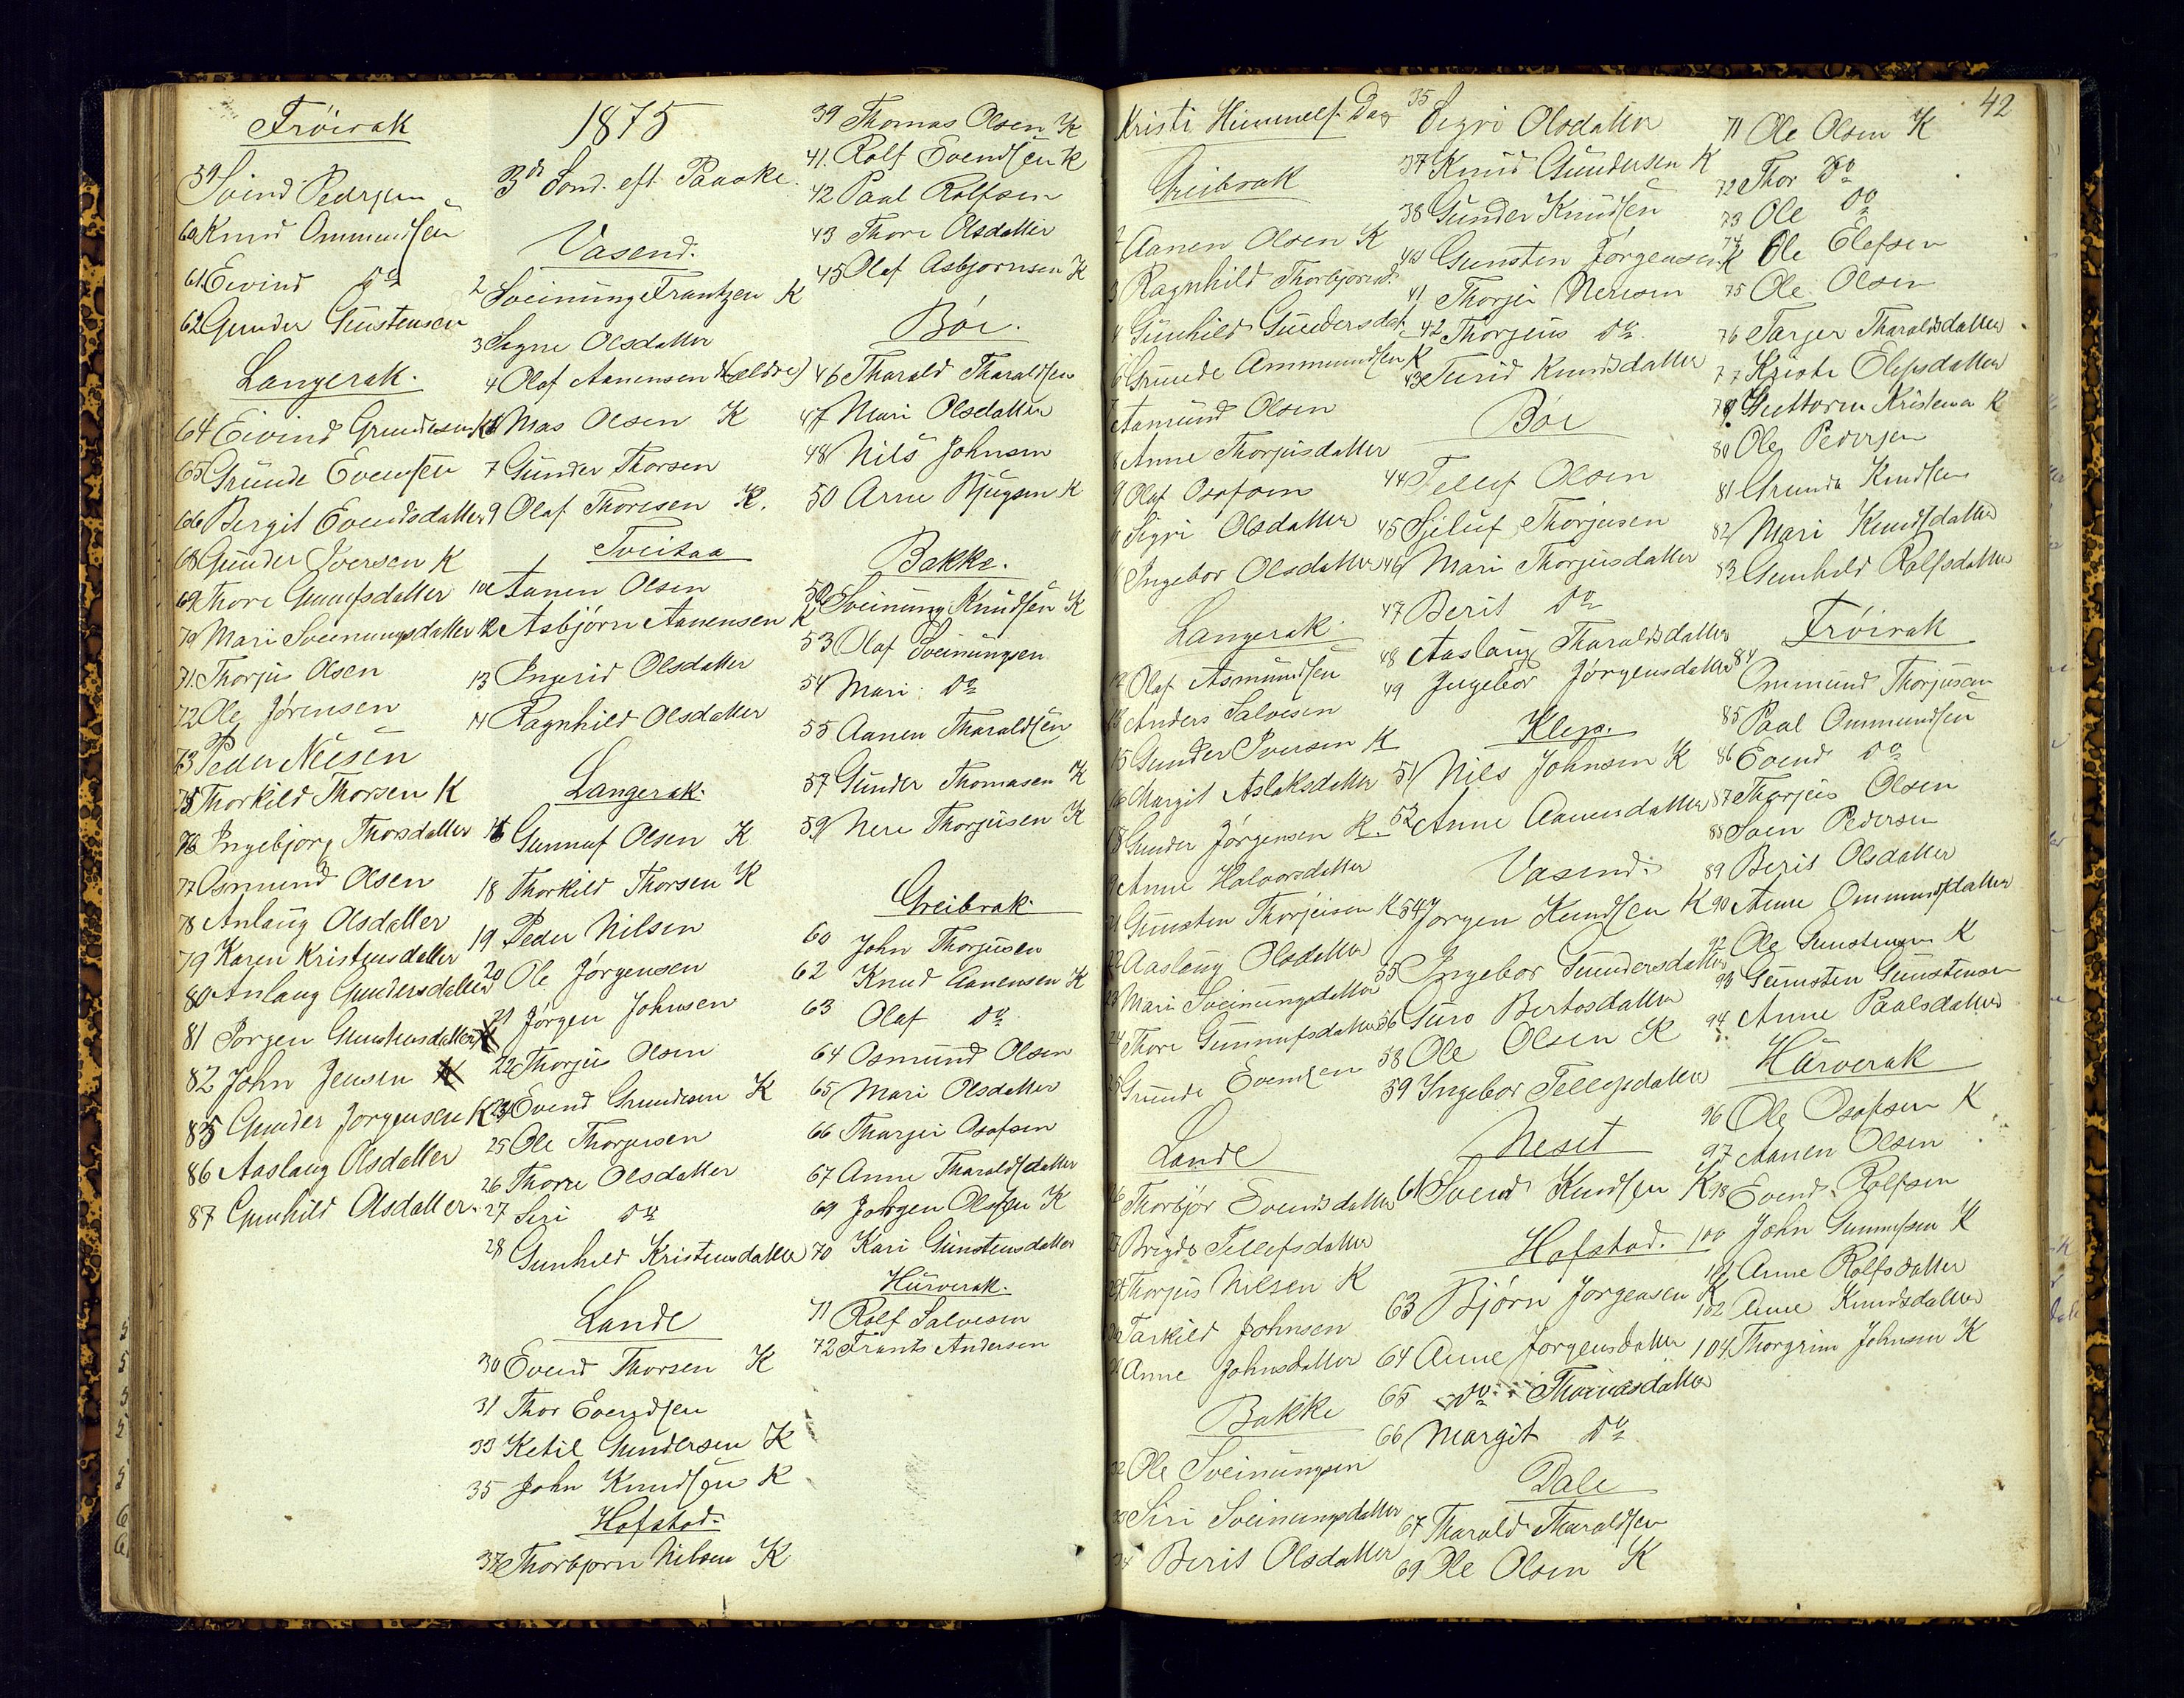 Fröirak
59 Svind Pedersen
60 Knud Ommundsen
61. Eivind do
62 Gunder Gunstensen
Langerak.
64 Eivind Grundesen K
65 Grunde Evensen
66 Bergit Evendsdatter
68 Gunder Iversen K
69 Thore Gunufsdatter
70 Mari Sveinungsdatter
71. Thorjus Olsen
72 Ole Jörensen
73 Peder Nelsen
75 Thorkild Thorsen K
76 Ingebjorg Thorsdatter
77 Osmund Olsen
78 Anlaug Olsdatter
79 Karen Kristensdatter
80 Anlaug Gundersdatter
81 Jorgen Gunstensdatter
82 John Jensen
85 Gunder Jorgensen K
86 Aaslaug Olsdatter
87 Gunhild Olsdatter.
1875
3de Sond. eft. Paaske.
Vasend.
2 Sveinung Frantzen K
3 Signe Olsdatter
4 Olaf Aanensen K (eldre)
6 Mas Olsen K
7 Gunder Thorsen
9 Olaf Thoresen K.
Tveitaa
10 Aanen Olsen
12 Asbjörn Aanensen K
13 Ingerid Olsdatter
14 Ragnhild Olsdatter
Langerak.
16 Gunnuf Olsen K
18 Thorkild Thorsen K
19 Peder Nilsen
20 Ole Jörgensen
21 Jörgen Johnsen
22 Thorjus Olsen
24 Evend Grundesen K
25 Ole Thorjusen
26 Thorre Olsdatter
27 Siri do
28 Gunhild Kristensdatter
Lande
30 Evend Thorsen K
31 Thor Evendsen
33 Ketil Gundersen K
35 John Knudsen K
Hofstad.
37 Thorbjorn Nilsen K
39 Thomas Olsen K
41. Rolf Evendsen K
42 Paal Rolfsen
43 Thore Olsdatter
45 Olaf Asbjornsen K
Böe.
46 Tharald Tharaldsen
47 Mari Olsdatter
48 Nils Johnsen
50 Arne Bjugsen K
Bakke.
52 Sveinung Knudsen K
53 Olaf Sveinungsen
54 Mari do
55 Aanen Tharaldsen
57 Gunder Thomasen K
59 Nere Thorjusen K
Greibrak
60 John Thorjusen
62 Knud Aanensen K
63 Olaf do
64 Osmund Olsen
65 Mari Olsdatter
66 Tharjei Osofsen
67 Anne Tharaldsdatter
69 Jörgen Olssen K
70 Kari Gunstensdatter
Hurverak.
71 Rolf Salvesen
72 Frants Andersen
Kristi Himmelf. Dag
Greibrak
2 Aanen Olsen K
3 Ragnhild Thorbjornsd.
4 Gunhild Gundersdat.
6 Grunde Ammundsen K
7 Aamund Olsen
8 Anne Thorjusdatter
9 Olaf Osofsen
Sigri Olsdatter
11 Ingebor Olsdatter
Langerak
12 Olaf Asmundsen
13 Anders Salvesen
15 Gunder Iversen K
16 Margit Aslaksdatter
18 Gunder Jörgensen K.
19 Anne Halvorsdatter
21 Gunsten Thorjusen K
22 Aaslaug Olsdatter
23 Mari Sveinungsdatter
24 Thore Gunnufsdatter
25 Grunde Evensen
Lande
26 Thorbjör Svendsdatter
27 Brigdt Tellefsdatter
29 Thorjus Nilsen K
30 Tarkild Johnsen
31 Anne Johnsdatter
Bakke
32 Ole Sveinungsen
33 Siri Sveinungsdatter
34 Berit Olsdatter
35 Sigri Olsdatter
37 Knud Gundersen K
38 Gunder Knudsen
40 Gunsten Jörgensen K
41 Thorjei Neresen
42 Thorjeus do
43 Turid Knudsdatter
Böe
44 Tellef Olsen
45 Sjeluf Thorjusen
46 Mari Thorjusdatter
47 Berit do
48 Aaslaug Tharaldsdatter
49 Ingebor Jörgensdatter
Klep.
51 Nils Johnsen K
52 Anne Aanensdatter
Vasend.
54 Jorgen Kundsen K
55 Ingebor Gundersdatter
56 Guro Bertosdatter
58 Ole Olsen K
59 Ingebor Tellefsdatter
Neset
61 Svend Kundsen K
Hofstad.
63 Björn Jörgensen K
64 Anne Jorgensdatter
65 do Thomasdatter
66 Margit do
Dale
67 Tharald Tharaldsen
69 Ole Olsen K
42
71 Ole Olsen K
72 Thor do
73 Ole do
74 Ole Elefsen
75 Ole Olsen
76 Tarjer Tharaldsdatter
77 Kriste Elefsdatter
79 Guttorm Kristensen K
80 Ole Pedersen
81 Grunde Kundsen
82 Mari Kundsdatter
83 Gunhild Rolfsdatter
Fröirak
84 Ommund Thorjusen
85 Paal Ommundsen
86 Evend do
87 Thorjus Olsen
88 Sven Pedersen
89 Berit Olsdatter
90 Anne Ommundsdatter
92 Ole Gunstensen K
93 Gunsten Gunstensen
94 Anne Paalsdatter
Hurverak
96 Ole Osofsen K
97 Aanen Olsen
98 Evend Rolfsen
100 John Gunnufsen K
101 Anne Rolfsdatter
102 Anne Knudsdatter
104 Thorgrim Johnsen K